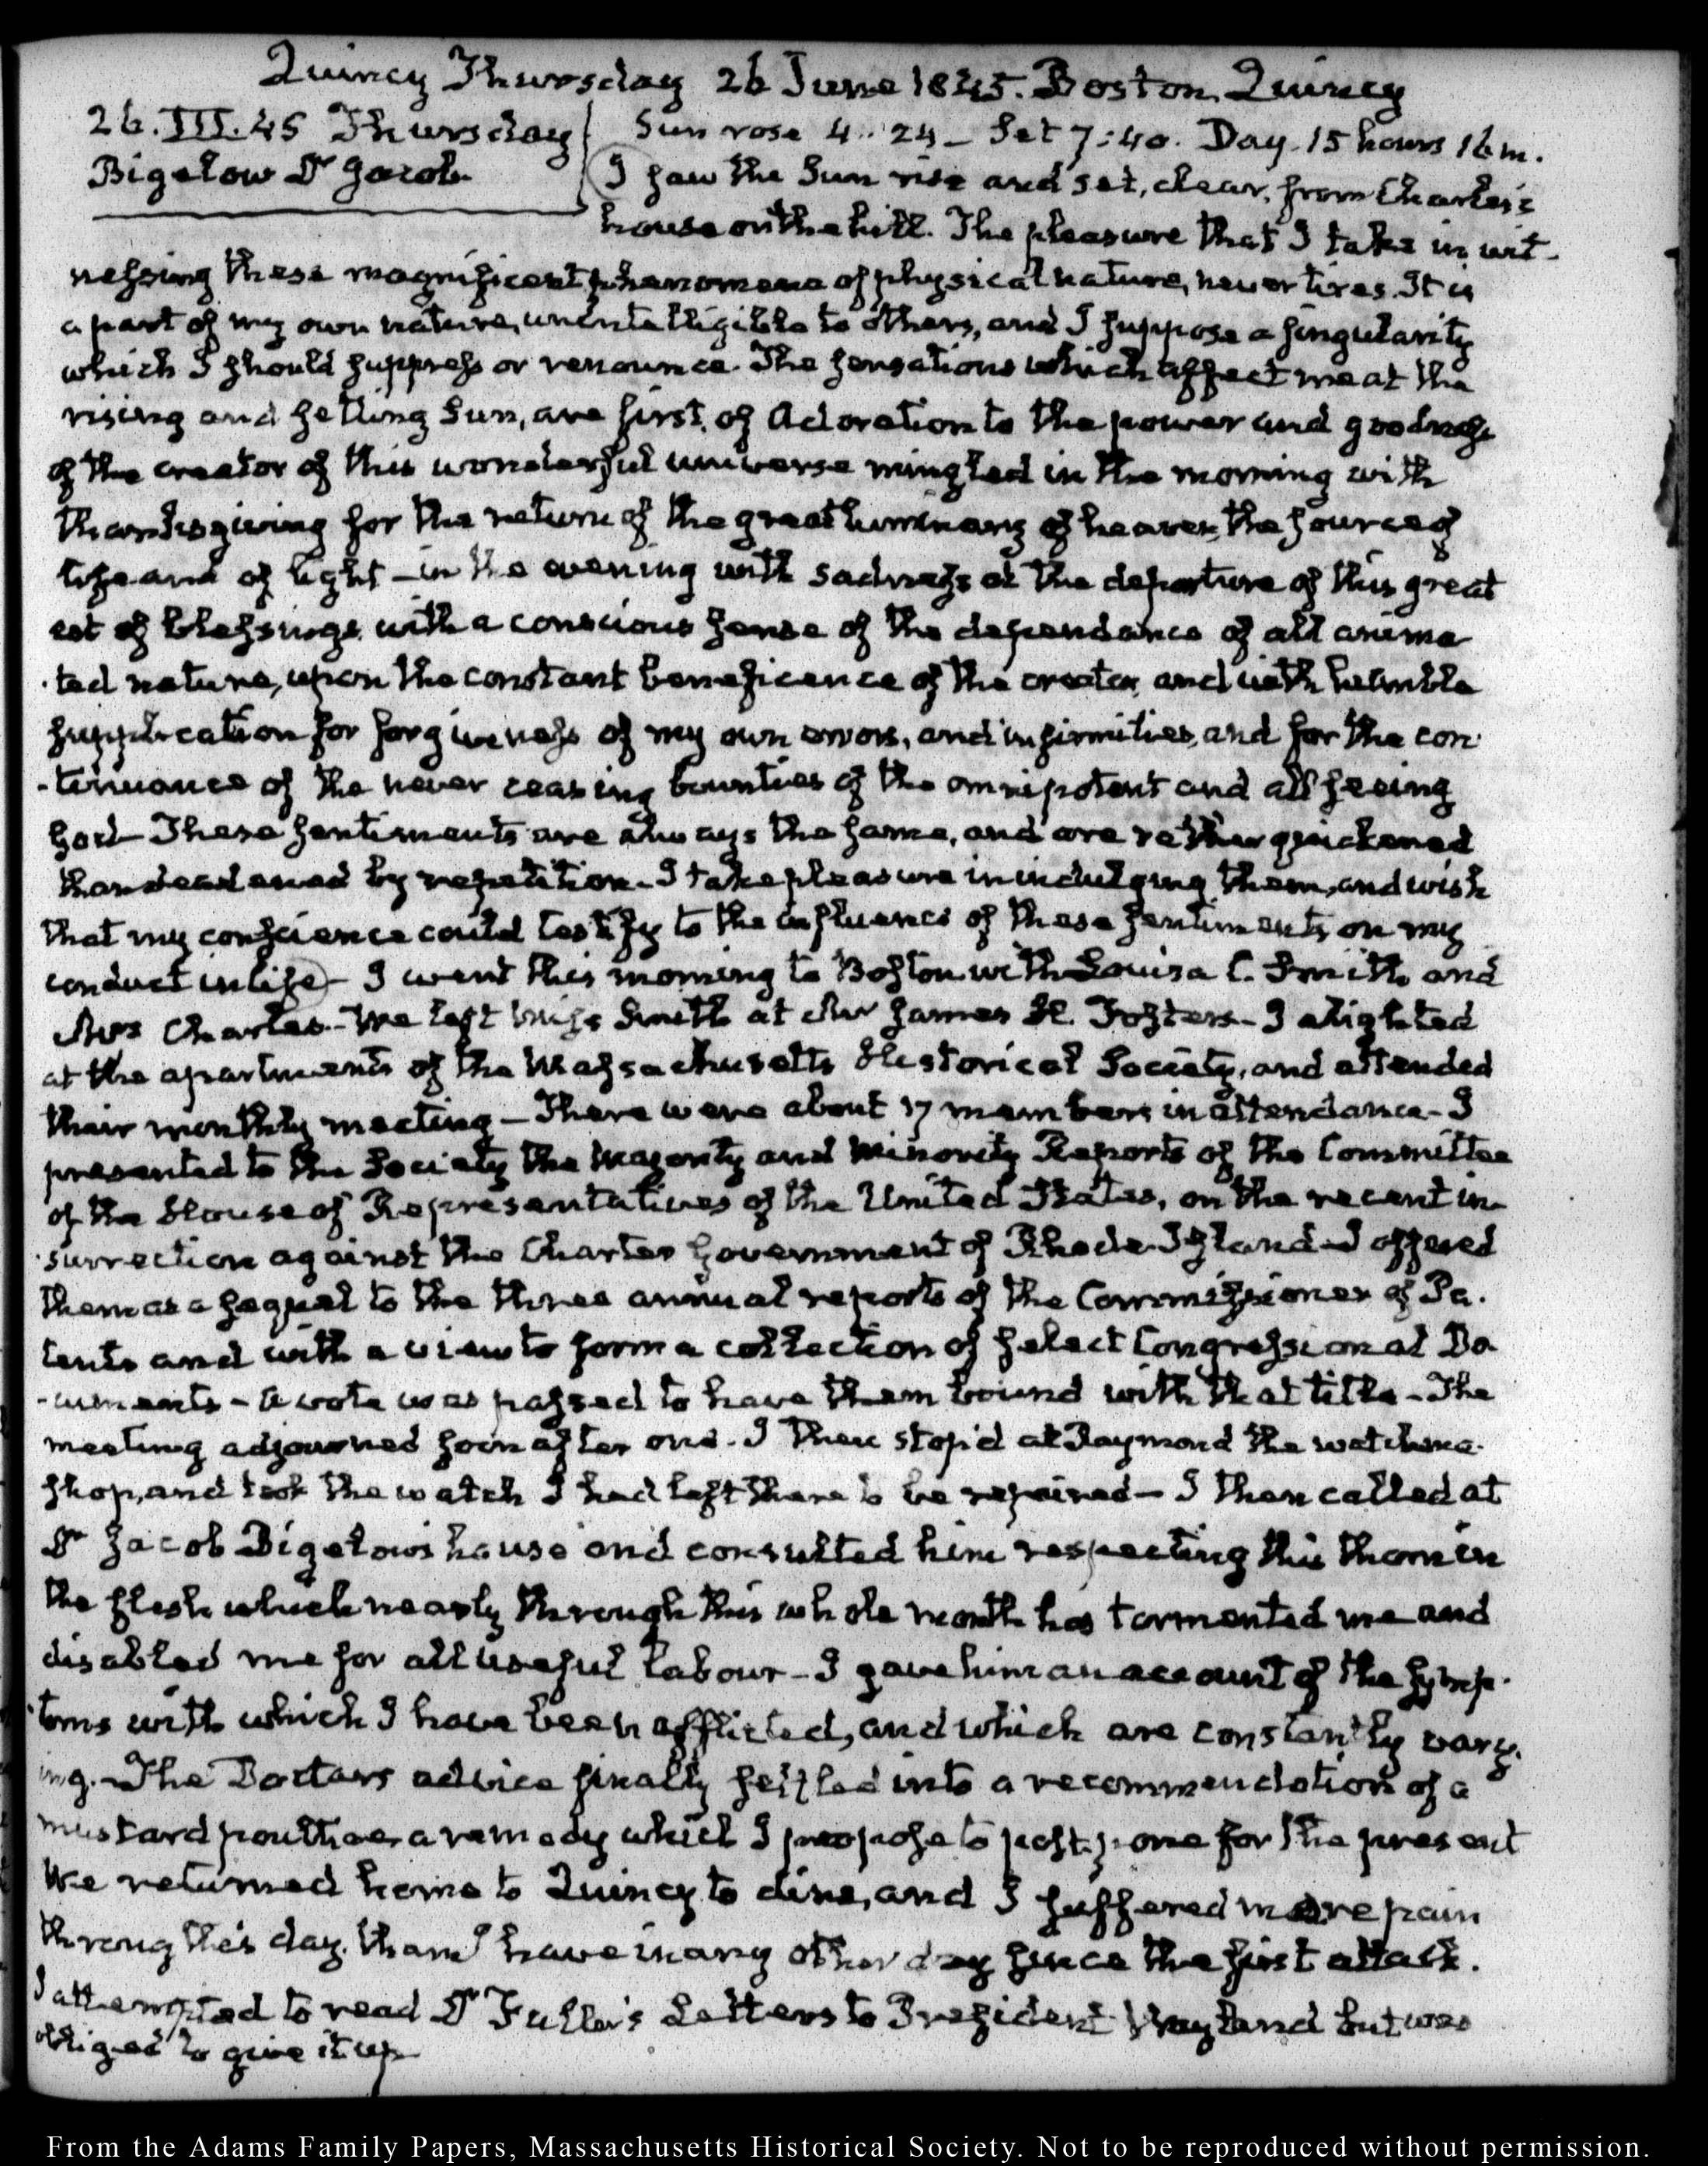 Quincy Thursday 26 June 1845. Boston. Quincy
26. III. 45 Thursday
Bigelow Dr. Jacob.
Sun rose 4:24 – Set 7:40. Day. 15 hours 16 m.
I saw the Sun rise and set, clear, from Charles's
house on the hill. The pleasure that I take in wit-
nessing these magnificent phenomena of physical nature, never tires. It is
a part of my own nature, unintelligible to others, and I suppose a singularity
which I should suppress or renounce. The sensations which affect me at the
rising and setting Sun, are first, of Adoration to the power and goodness
of the creator of this wonderful universe mingled in the morning with
thanksgiving for the return of the great luminary of heaven, the source of
life and of light – in the evening with sadness at the departure of this great
 of blessings, with a conscious sense of the dependance of all anima
-ted nature, upon the constant beneficence of the creator, and with humble
supplication for forgiveness of my own errors, and infirmities, and for the con
-tinuance of the never ceasing bounties of the omnipotent and all seeing
God – These sentiments are always the same, and are rather quickened
than deadened by repetition – I take pleasure in indulging them, and wish
that my conscience could testify to the influence of these sentiments on my
conduct in life – I went this morning to Boston with Louisa C. Smith and
Mrs Charles. – We left Miss Smith at Mr James H. Foster's – I alighted
at the apartments of the Massachusetts Historical Society, and attended
their monthly meeting – There were about 17 members in attendance – I
presented to the Society the Majority and Minority Reports of the Committee
of the House of Representatives of the United States, on the recent in-
-surrection against the Charter Government of Rhode-Island – I offered
them as a sequel to the three annual reports of the Commissioner of Pa-
tents and with a view to form a collection of select Congressional Do
-cuments – A vote was passed to have them bound with that title – The
meeting adjourned soon after one. I then stop'd at Raymond the watchma-
shop, and took the watch I had left there to be repaired – I then called at
Dr Jacob Bigelow's house and consulted him respecting this thorn in
the flesh which nearly through this whole month has tormented me and
disabled me for all useful labour – I gave him an account of the symp-
-toms with which I have been afflicted, and which are constantly vary-
ing. – The Doctor's advice finally settled into a recommendation of a
mustard poultice, a remedy which I propose to postpone for the present
We returned home to Quincy to dine, and I suffered more pain
throug this day, than I have in any other day since the first attack.
I attempted to read Dr Fuller's Letters to President Wayland but was
obliged to give it up
From the Adams Family Papers, Massachusetts Historical Society. Not to be reproduced without permission.